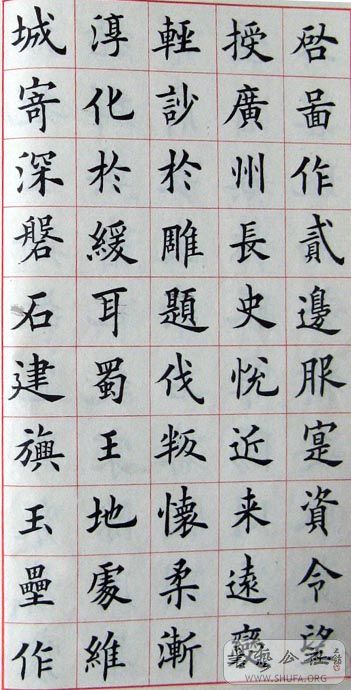 启啚作貳邊服寔資令望
授廣州長史悅近来遠
輕訬於雕題伐叛懷柔漸
淳化於緩耳蜀王地處維
城寄深磐石建旟玉壘作
WWW.SHUFA.ORG